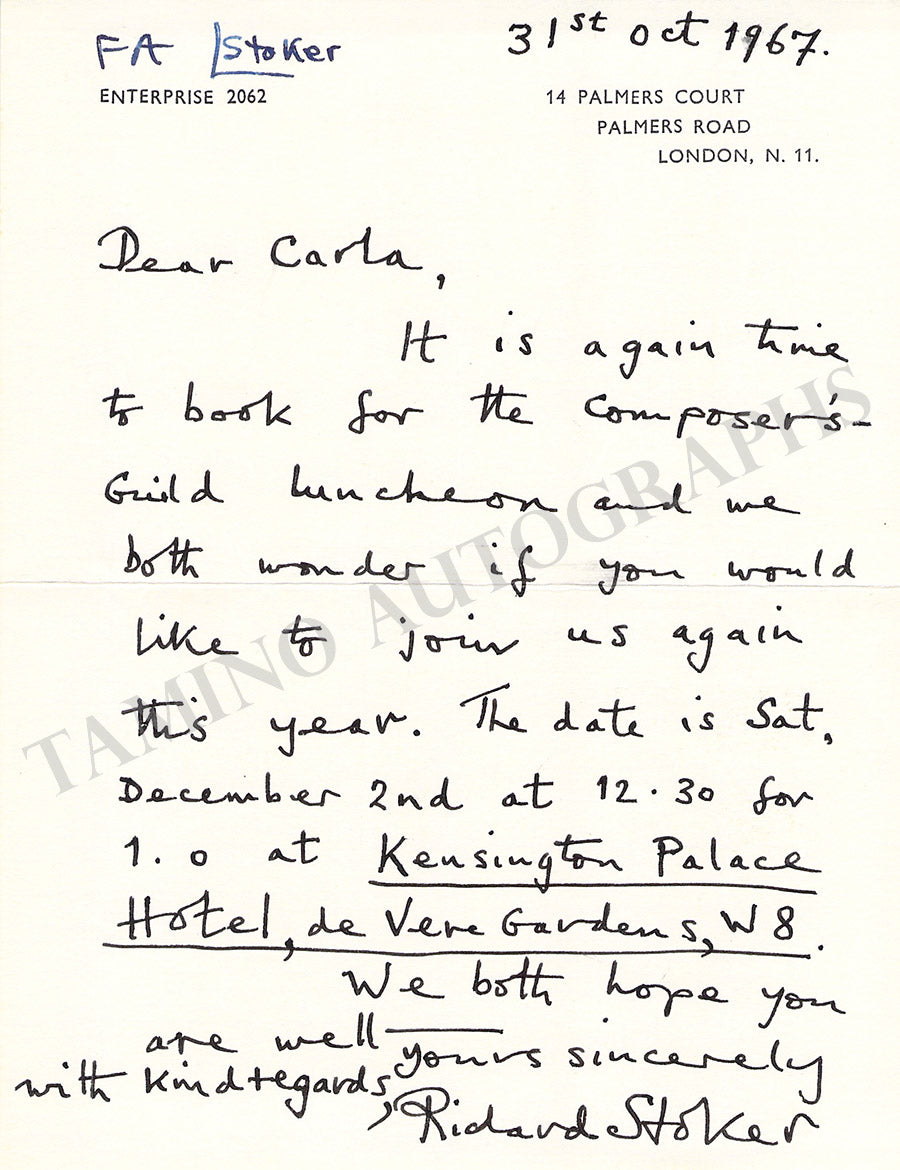 FA Stoker
31st Oct 1967.
ENTERPRISE 2062
14 PALMERS COURT
PALMERS ROAD
LONDON, N. 11.
Dear Carla,
It is again time
to book for the Composer's-
Guild luncheon and we
both wonder if you would
like to join us again
this year. The date is Sat,
December 2nd at 12.30 for
1.0 at Kensington Palace
Hotel, de Vere Gardens, W8.
We both hope you
are well —
yours sincerely
with kind regards,
Richard Stoker
TAMINO AUTOGRAPHS